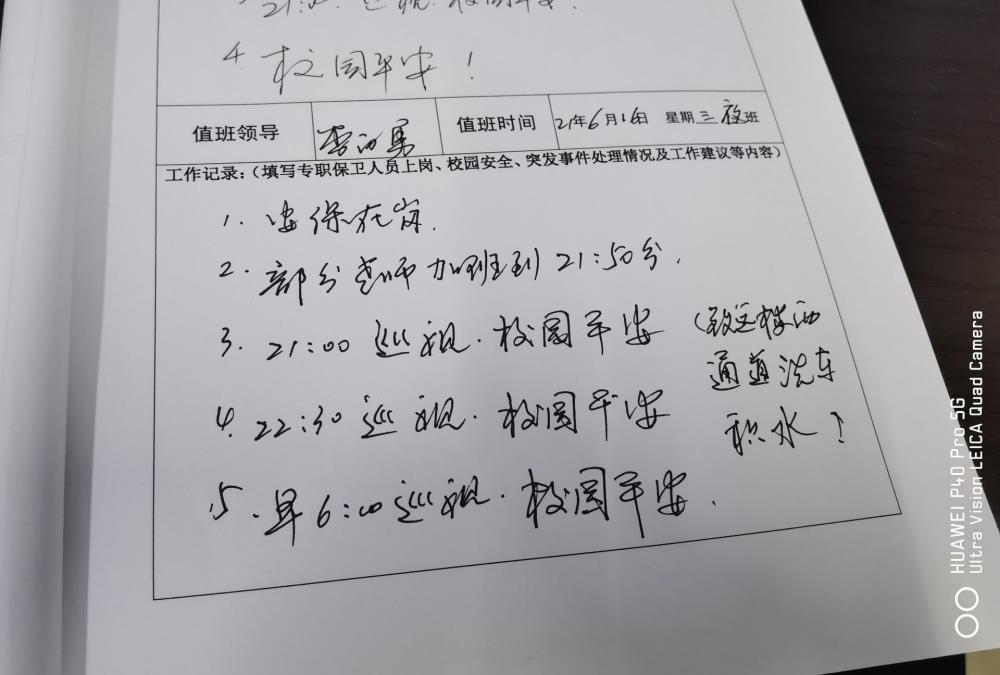 21:00 巡视.校园平安.
4. 校园平安!
值班领导 值班时间 21年6月16日 星期三夜班
工作记录:(填写专职保卫人员上岗、校园安全、突发事件处理情况及工作建议等内容)
1. 安保在岗.
2. 部分老师加班到21:50分.
3. 21:00 巡视.校园平安 (致远楼西
通道洗车
4. 22:30 巡视.校园平安
积水)
5. 早6:00巡视.校园平安.
HUAWEI P40 Pro 5G
Ultra Vision LEICA Quad Camera